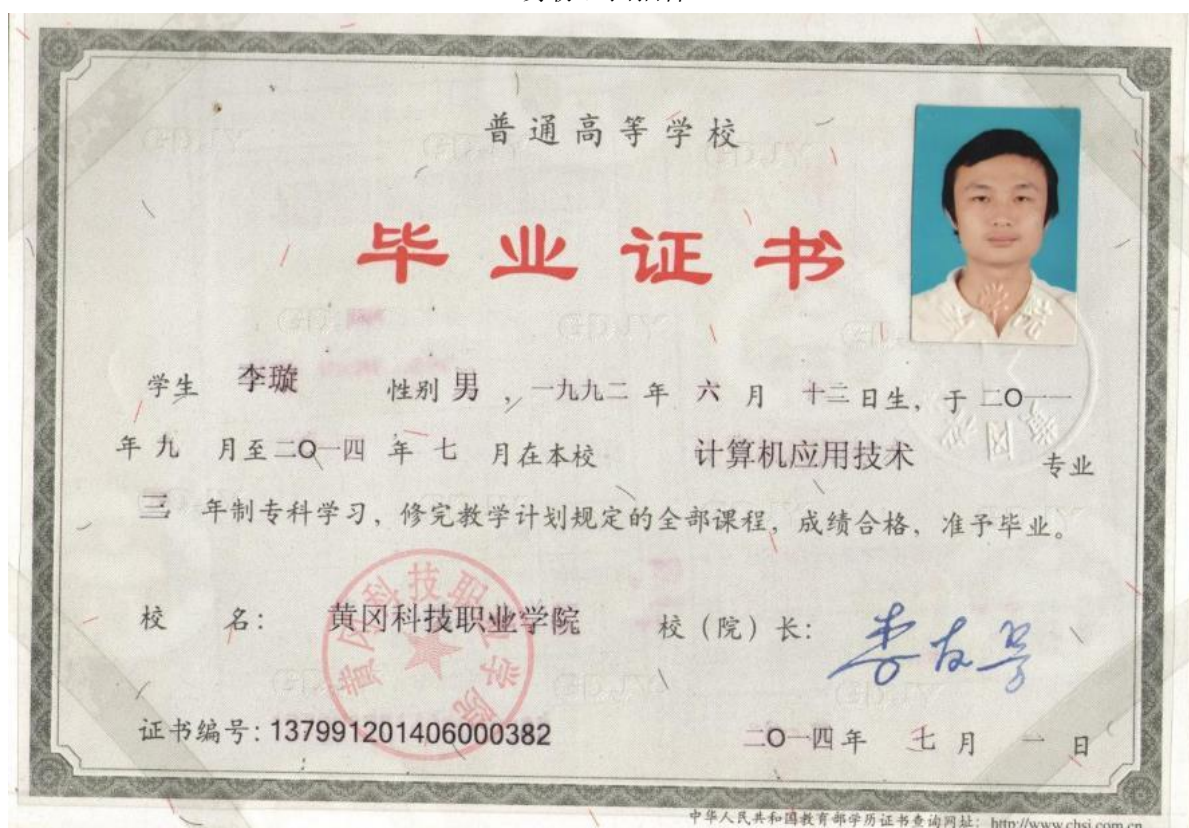 普通高等学校
毕业证书
学生 李璇 性别 男 ,一九九二 年 六 月 十二 日生, 于 二O一一
年 九 月至 二O一四 年 七 月在本校 计算机应用技术 专业
三 年制专科学习, 修完教学计划规定的全部课程, 成绩合格, 准予毕业。
校 名: 黄冈科技职业学院 校(院)长:
黄冈科技职业学院
证书编号: 137991201406000382 二O一四 年 七 月 一 日
中华人民共和国教育部学历证书查询网址: http://www.chsi.com.cn